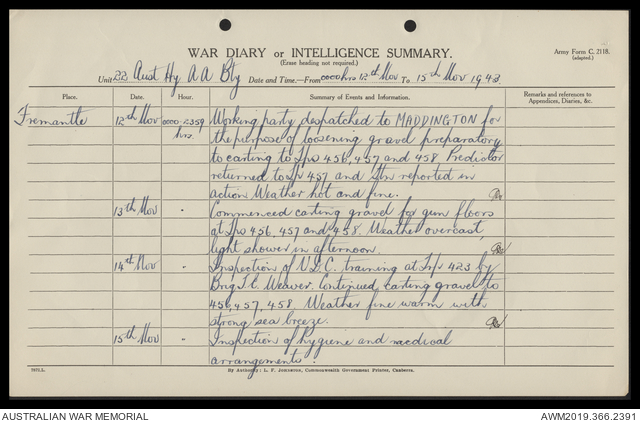 WAR DIARY or INTELLIGENCE SUMMARY.
Army Form C. 2118.
(adapted.)
(Erase heading not required.)
Unit 22 Aust Hy AA Bty Date and Time.—From 0000 hrs 12th Nov To 15th Nov 1943
Place. Date. Hour. Summary of Events and Information. Remarks and references to Appendices, Diaries, &c.
Fremantle 12th Nov 0000-2359 hrs. Working party despatched to MADDINGTON for
the purpose of loosening gravel preparatory
to carting to 456, 457 and 458. Predictor
returned to 457 and Stn reported in
action. Weather hot and fine.
13th Nov " Commenced carting gravel for gun floors
at 456, 457 and 458. Weather overcast,
light shower in afternoon.
14th Nov " Inspection of V.D.C. training at 423 by
Brig Weaver. Continued carting gravel to
456, 457, 458. Weather fine warm with
strong sea breeze.
15th Nov " Inspection of hygiene and medical
arrangements.
By Authority: L. F. Johnston, Commonwealth Government Printer, Canberra.
AUSTRALIAN WAR MEMORIAL
AWM2019.366.2391